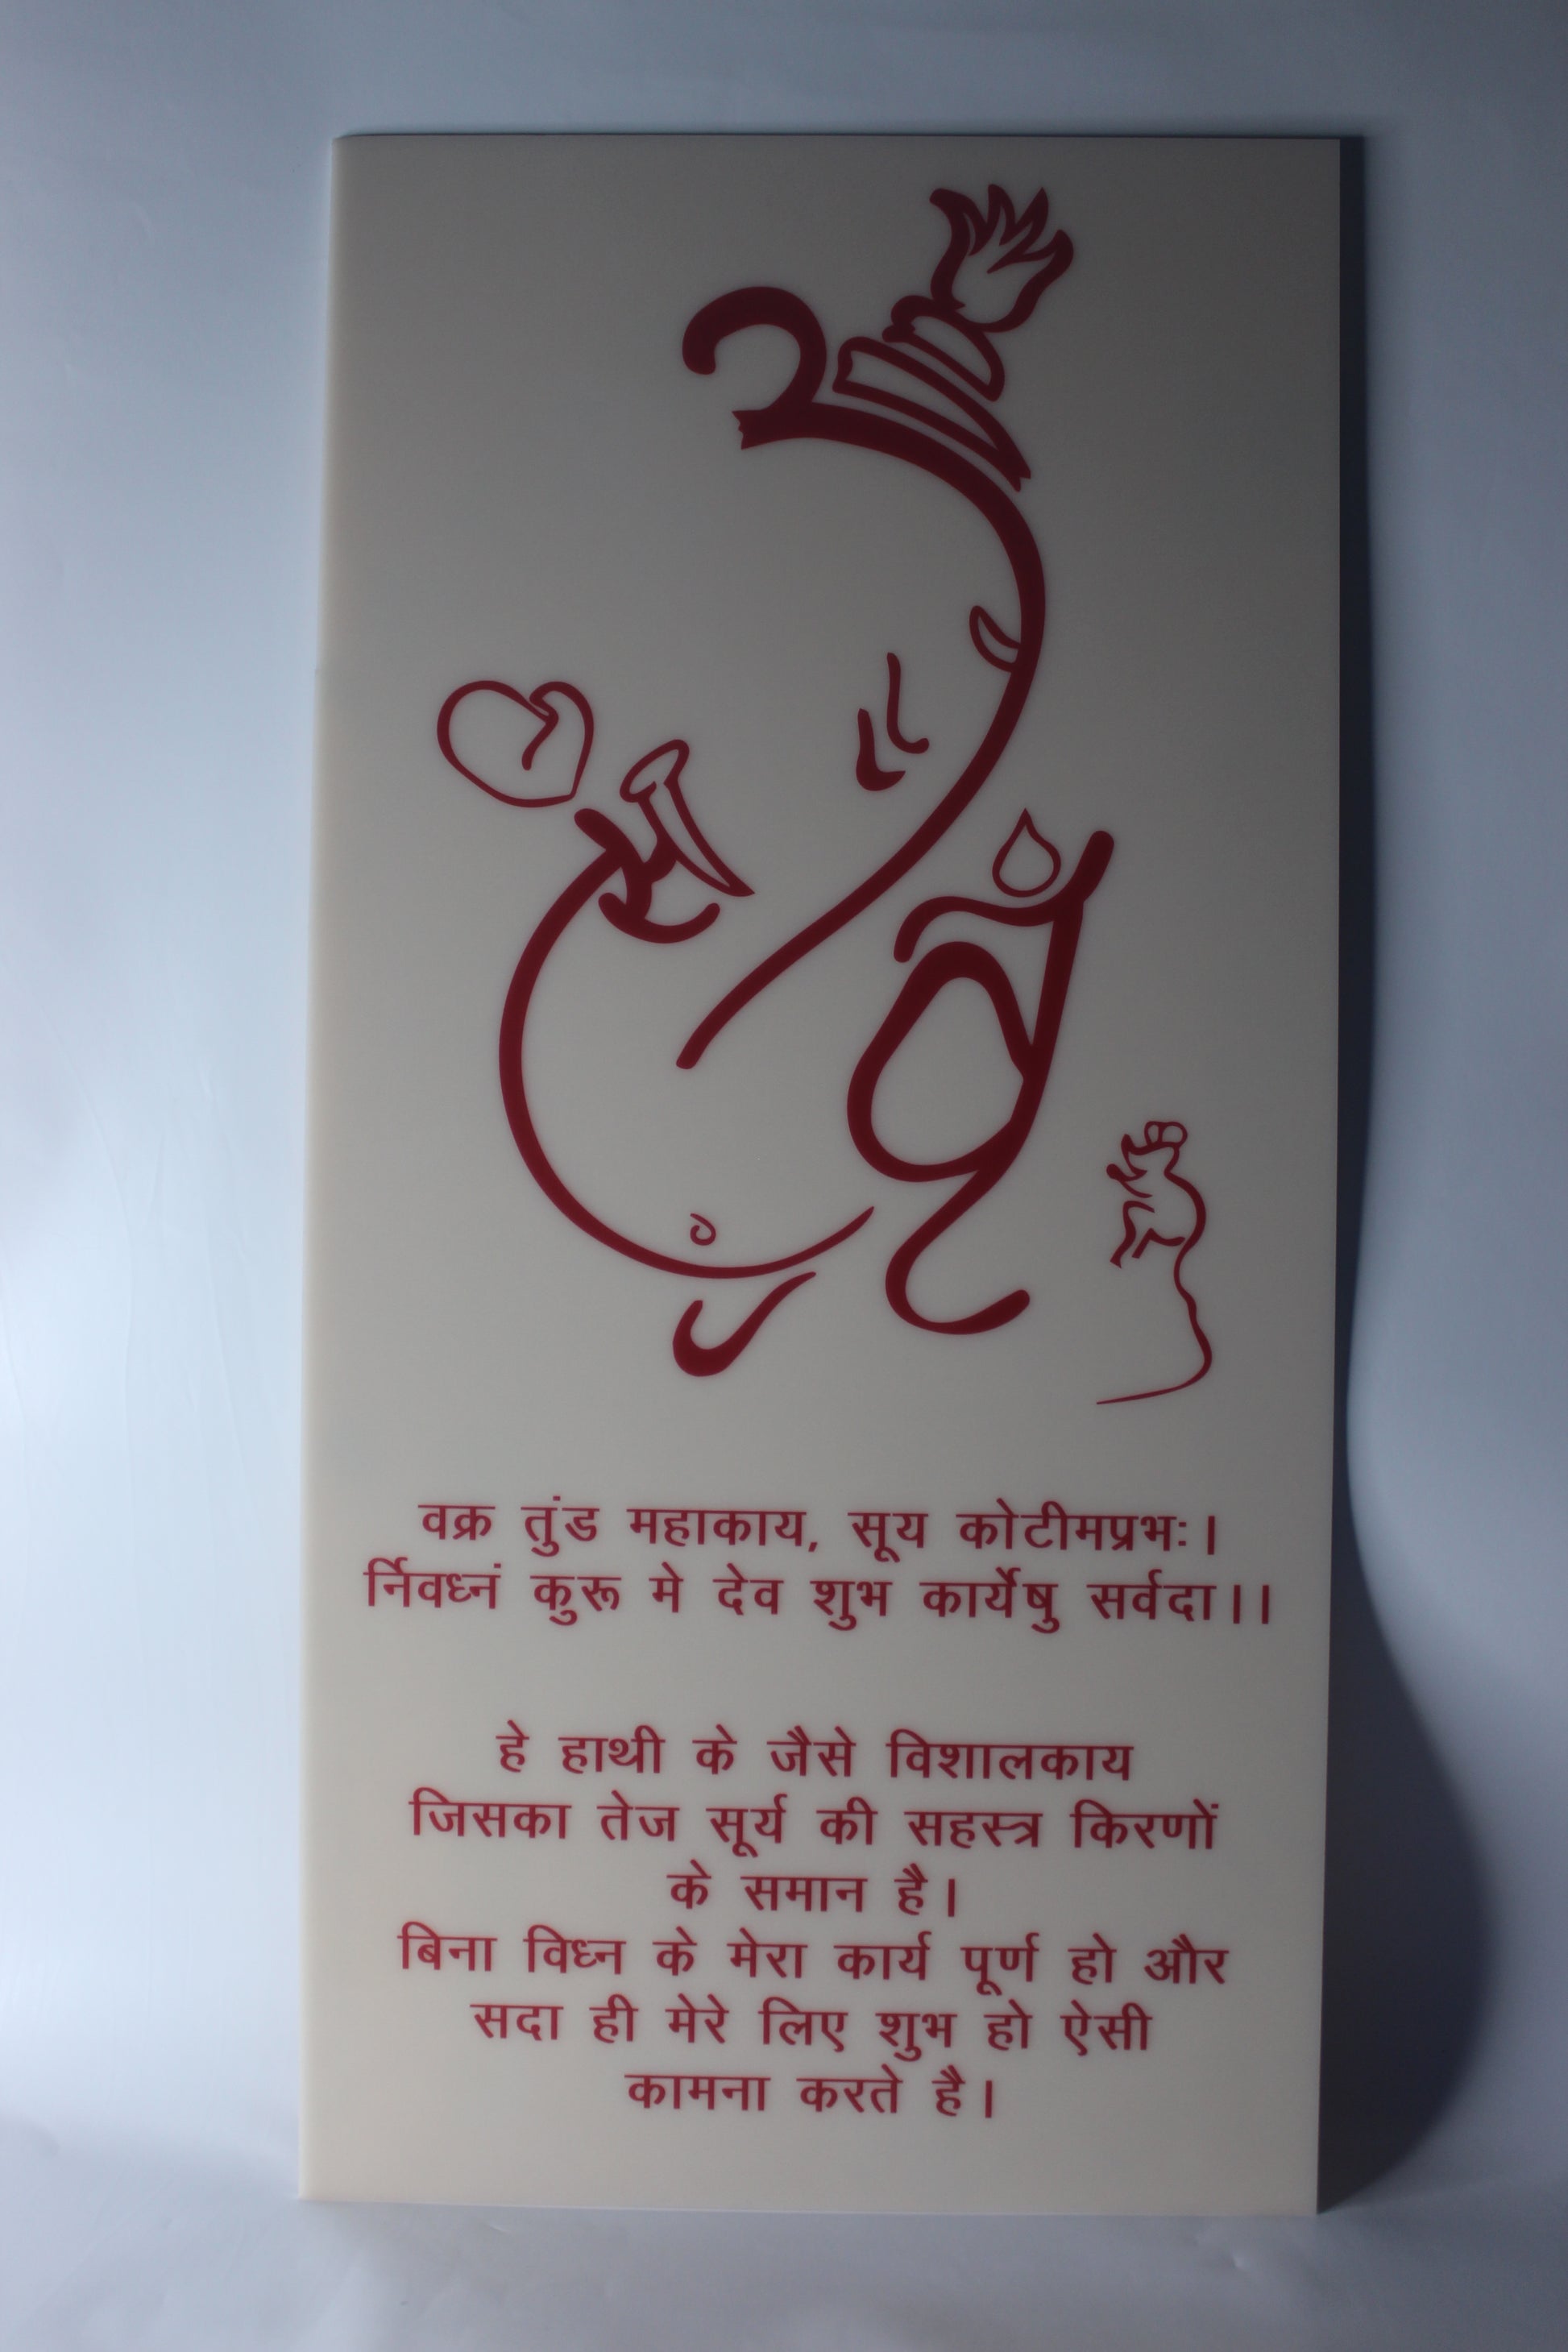 वक्र तुंड महाकाय, सूय कोटीमप्रभः।
र्निवध्नं कुरू मे देव शुभ कार्येषु सर्वदा।।
हे हाथी के जैसे विशालकाय
जिसका तेज सूर्य की सहस्त्र किरणों
के समान है।
बिना विध्न के मेरा कार्य पूर्ण हो और
सदा ही मेरे लिए शुभ हो ऐसी
कामना करते है।